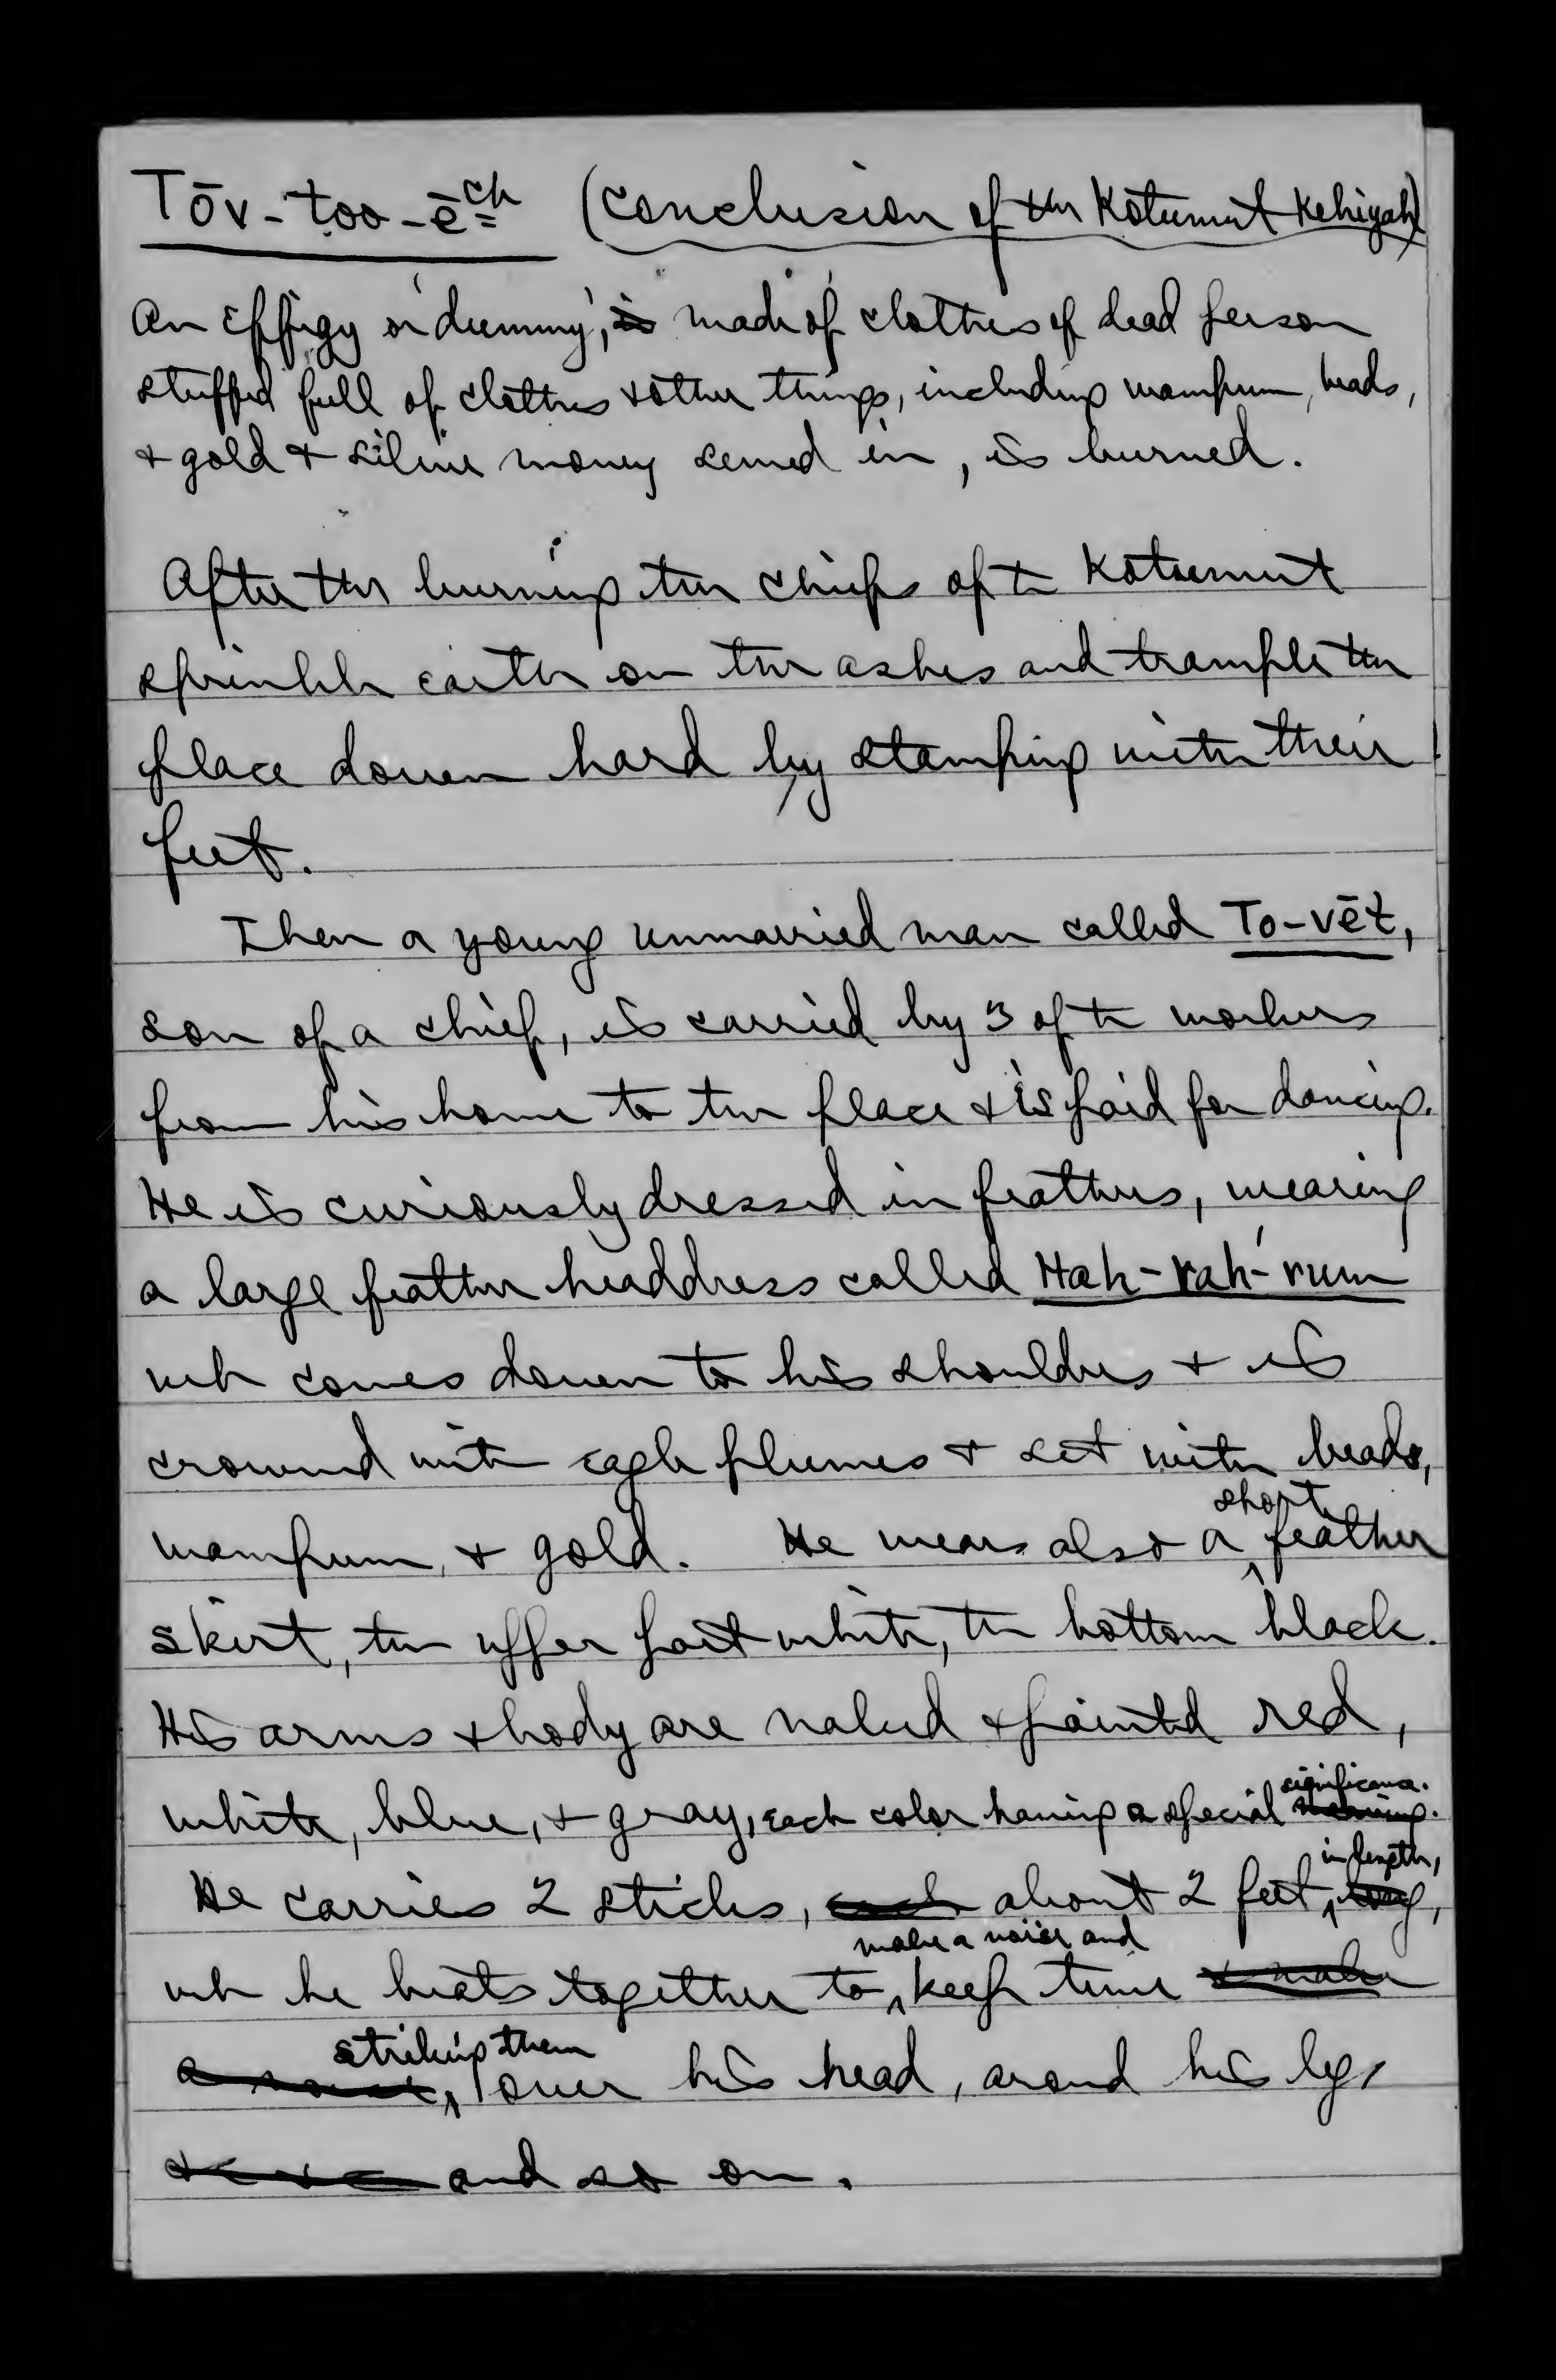 Tōv-too-ēch (conclusion of the Kotumut Kehiyah)
An Effigy or 'dummy', is made of clothes of dead person
stuffed full of clothes & other things, including wampum, beads,
& gold & silver money sewed in, is burned.
After the burning the chiefs of the Kotuemut
sprinkle earth on the ashes and trample the
place down hard by stamping with their
feet.
Then a young unmarried man called To-vēt,
son of a chief, is carried by 3 of the workers
from his home to the place & is paid for dancing.
He is curiously dressed in feathers, wearing
a large feather headdress called Hah-rah'-rum
wh comes down to his shoulders & is
crowned with eagle plumes & set with beads,
wampum, & gold. He wears also a short feather
skirt, the upper part white, the bottom black.
His arms & body are naked & painted red,
white, blue, & gray, each color having a special meaning. significance.
He carries 2 sticks, each about 2 feet in length, long,
wh he beats together to make a noise and keep time & make
a noise, striking them over his head, around his legs
and so on.